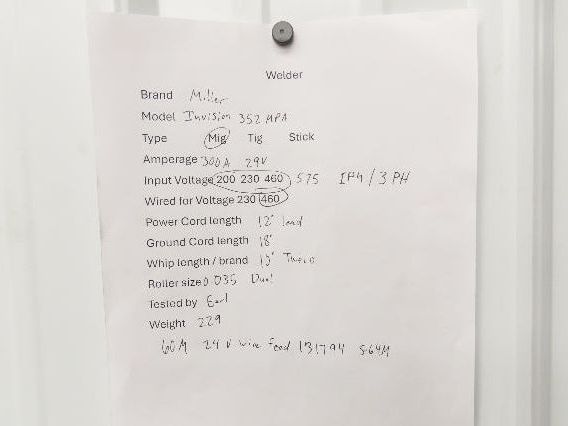 Welder
Brand Miller
Model Invision 352 MPA
Type Mig Tig Stick
Amperage 300A 29V
Input Voltage 200 230 460 575 1PH / 3 PH
Wired for Voltage 230 460
Power Cord length 12' lead
Ground Cord length 18'
Whip length / brand 15' Tweco
Roller size 0.035 Dual
Tested by Earl
Weight 229
60M 24 V wire feed 131794 S-64M